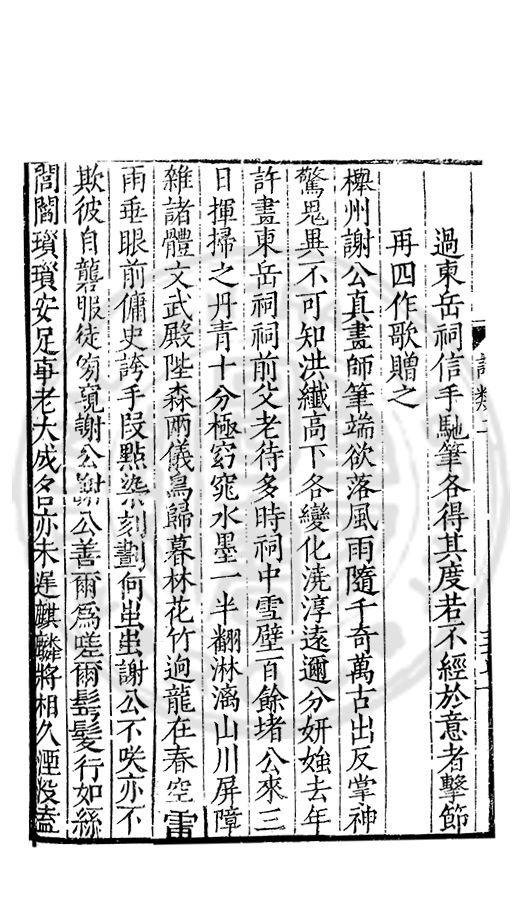 過東岳祠信手馳筆各得其度若不經於意者擊節
再四作歌贈之
櫸州謝公真畫師筆端欲落風雨隨千奇萬古出反掌神
驚鬼異不可知洪纖高下各變化澆淳遠邇分妍媸去年
許畫東岳祠祠前父老待多時祠中雪壁百餘堵公來三
日揮掃之丹青十分極窈窕水墨一半翻淋漓山川屏障
雜諸體文武殿陛森兩儀鳥歸暮林花竹逈龍在春空雷
雨垂眼前傭史誇手段點染刻劃何蚩蚩謝公不咲亦不
欺彼自龔服徒窈窺謝公謝公善爾為嗟爾鬂髮行如絲
閻閻瑣瑣安足事老大成名亦未遲麒麟將相久湮沒盍
詩類二